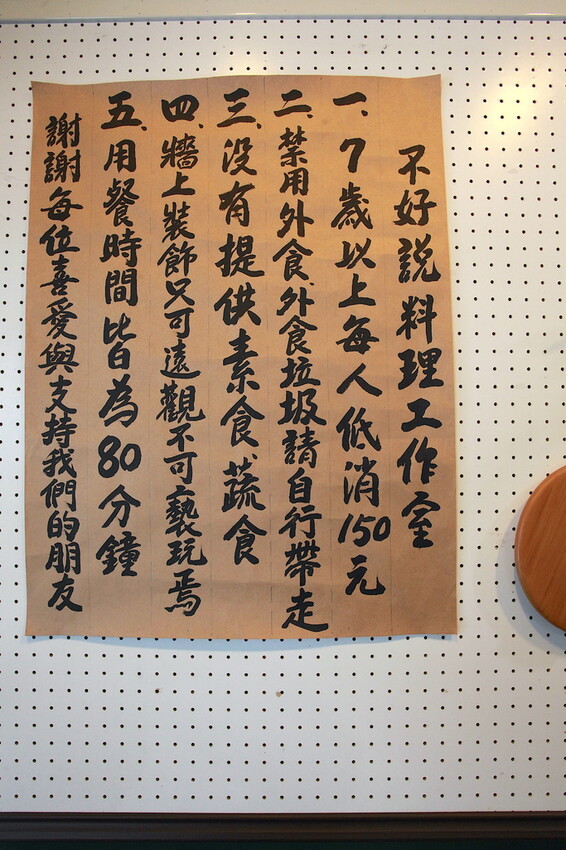 不好說料理工作室
一、7歲以上每人低消150元
二、禁用外食、外食垃圾請自行帶走
三、没有提供素食、蔬食
四、牆上裝飾只可遠觀不可褻玩焉
五、用餐時間皆為80分鐘
謝謝每位喜愛與支持我們的朋友